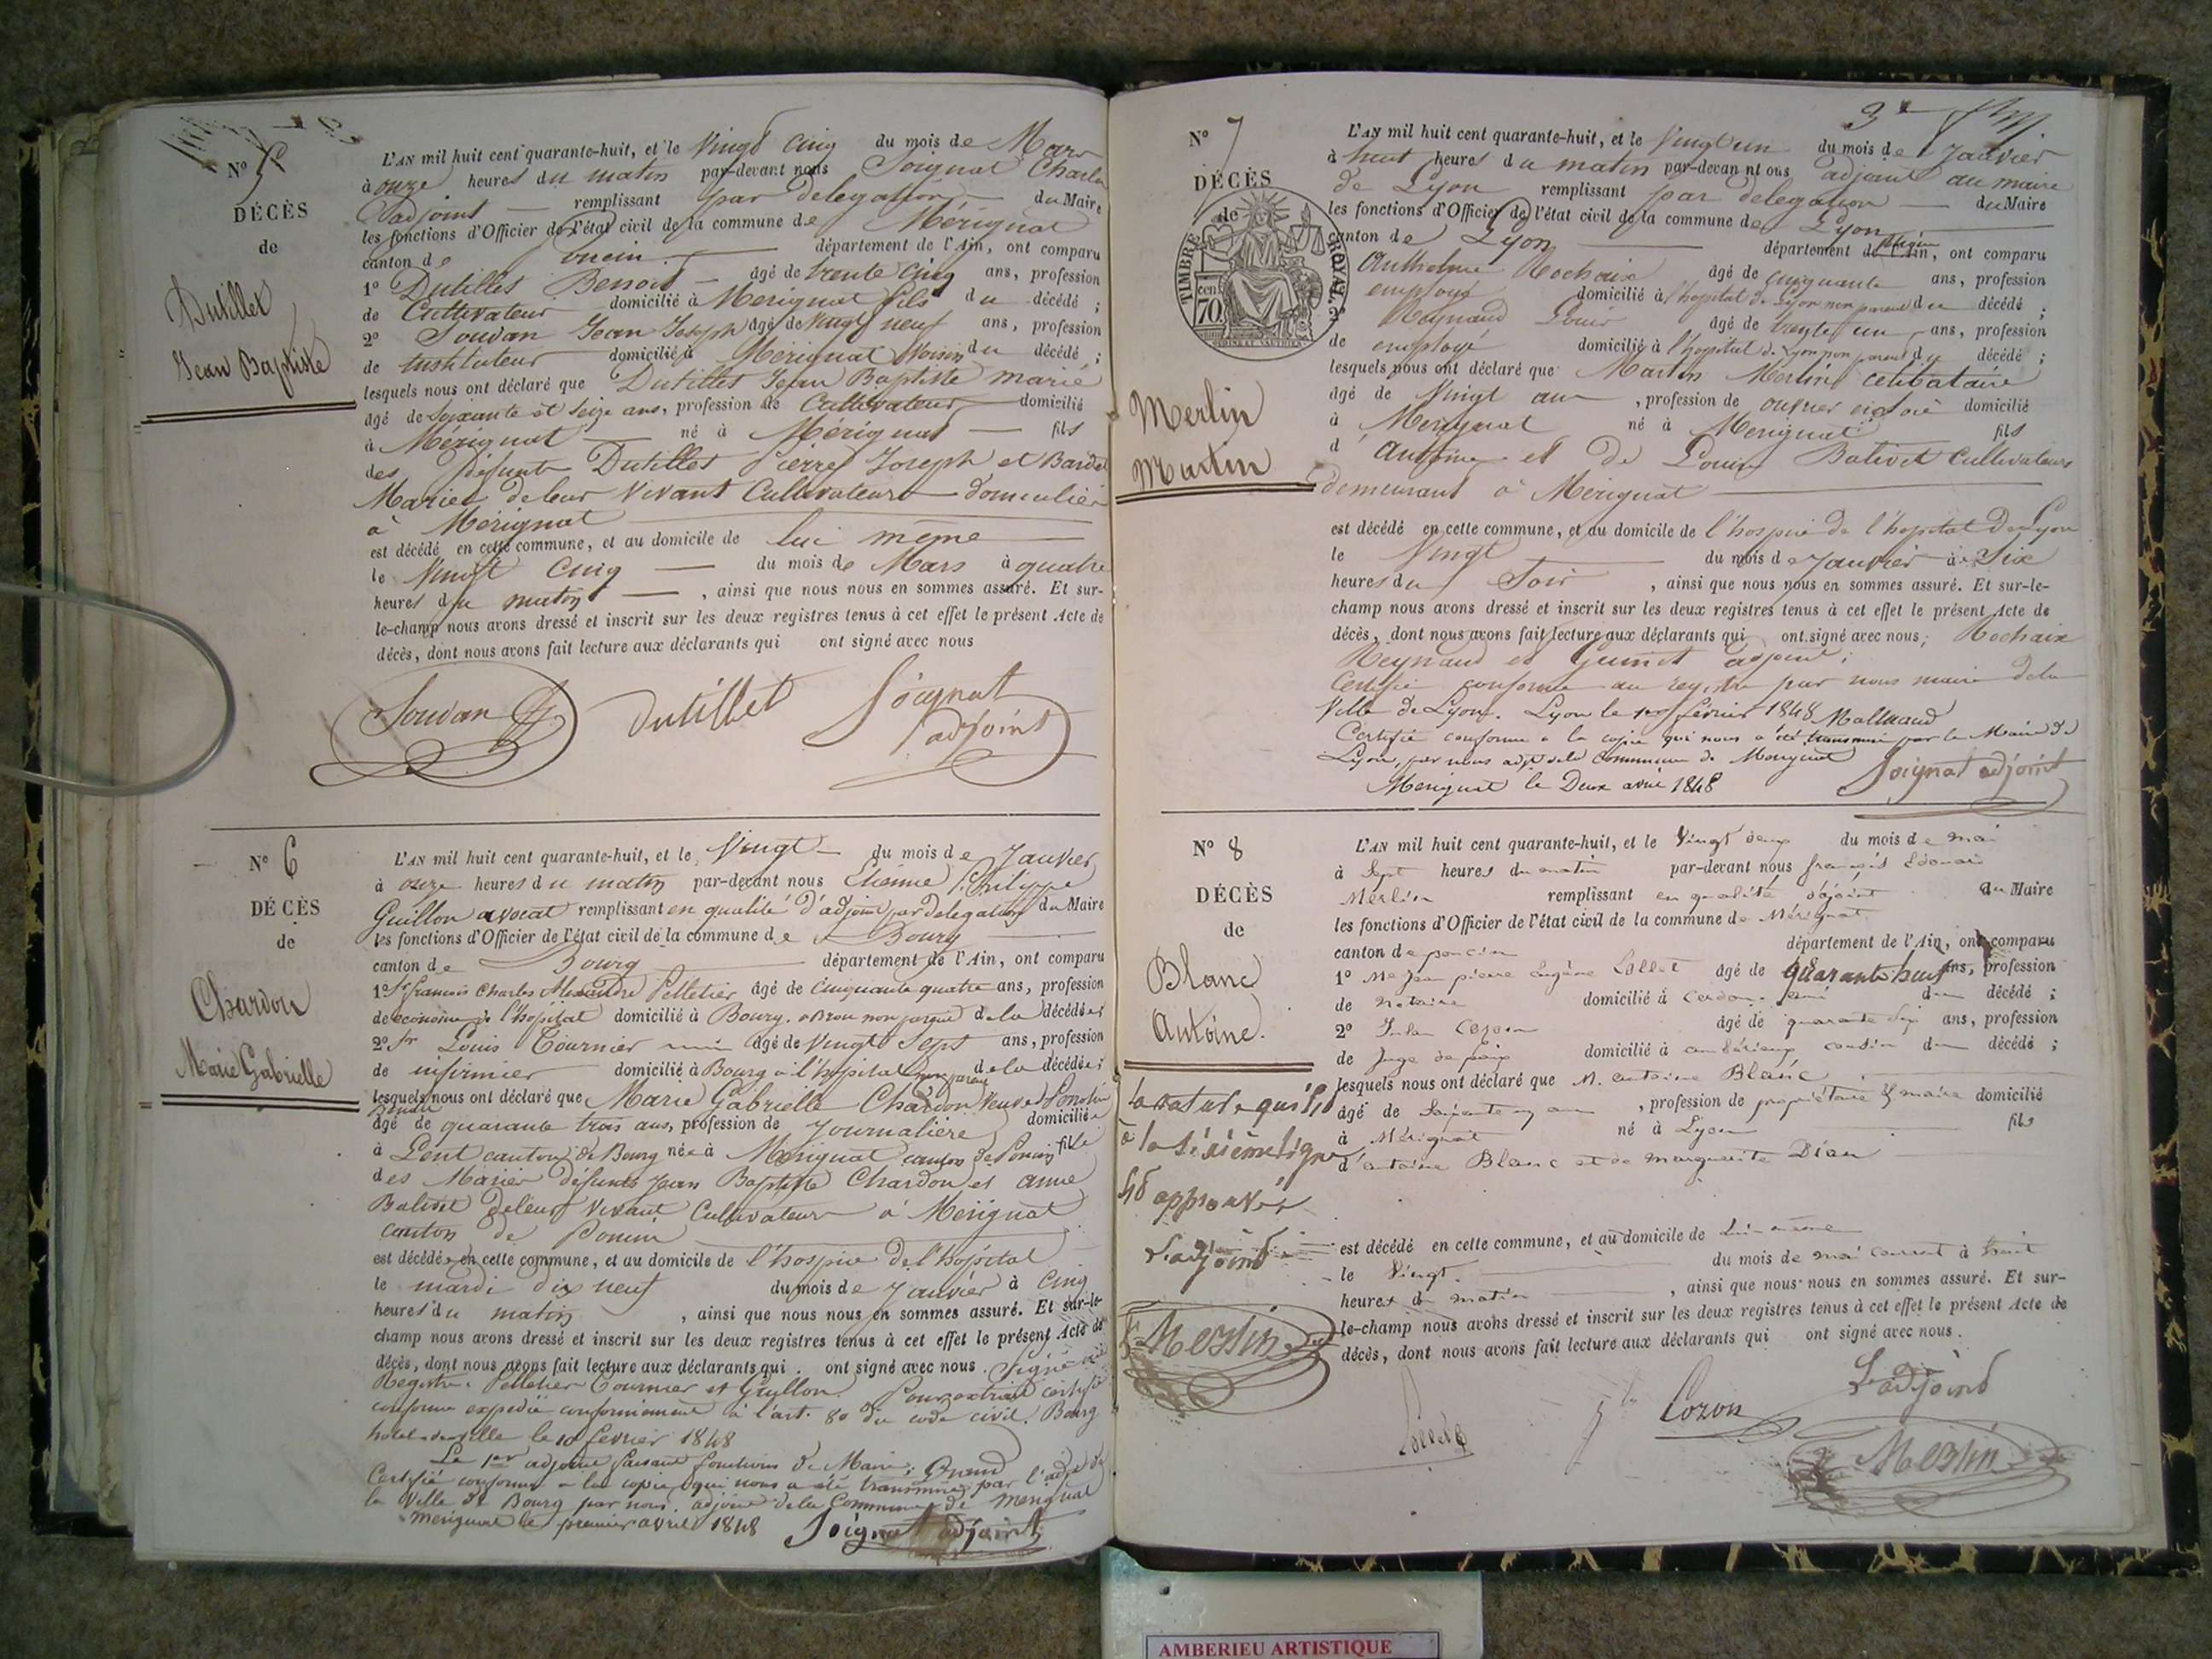 N° 5
DÉCÈS
de
Dutillet
Jean Baptiste
L'AN mil huit cent quarante-huit, et le Vingt cinq du mois de Mars
à onze heures du matin par-devant nous Soignat Charles
adjoint remplissant par delegation du Maire
les fonctions d'Officier de l'état civil de la commune de Mérignat
canton de département de l'Ain, ont comparu
1° Dutillet Benoit âgé de trente cinq ans, profession
de Cultivateur domicilié à Merignat fils du décédé ;
2° Souvan Jean Joseph âgé de vingt neuf ans, profession
de instituteur domicilié à Mérignat Voisin du décédé ;
lesquels nous ont déclaré que Dutillet Jean Baptiste marié
âgé de soixante et seize ans, profession de Cultivateur domicilié
à Mérignat né à Mérignat fils
des défunts Dutillet Pierre Joseph et Bardet
Mariée de leur Vivant Cultivateurs domiciliés
à Mérignat
est décédé en cette commune, et au domicile de lui même
le Vingt Cinq du mois de Mars à quatre
heures du matin , ainsi que nous nous en sommes assuré. Et sur-
le-champ nous avons dressé et inscrit sur les deux registres tenus à cet effet le présent Acte de
décès, dont nous avons fait lecture aux déclarants qui ont signé avec nous
Souvan Dutillet Soignat
adjoint
N° 6
DÉCÈS
de
Chardon
Marie Gabrielle
L'AN mil huit cent quarante-huit, et le Vingt du mois de Janvier
à onze heures du matin par-devant nous Etienne Philippe
Guillon avocat remplissant en qualité d'adjoint par delegation du Maire
les fonctions d'Officier de l'état civil de la commune de Bourg
canton de Bourg département de l'Ain, ont comparu
1° Sr francois Charles Alexandre Pelletier âgé de Cinquante quatre ans, profession
de econome de l'hôpital domicilié à Bourg, à Brou non parent de la décédée ;
2° Sr Louis Tournier âgé de Vingt Sept ans, profession
de infirmier domicilié à Bourg à l'hopital non parent de la décédée ;
lesquels nous ont déclaré que Marie Gabrielle Chardon Veuve
âgé de quarante trois ans, profession de Journalière domiciliée
à Lent canton de Bourg née à Mérignat canton de Poncin fille
des Mariés défunts Jean Baptiste Chardon et anne
Balivet de leur vivant Cultivateurs à Mérignat
canton de Poncin
est décédée en cette commune, et au domicile de l'hospice de l'hopital
le mardi dix neuf du mois de Janvier à Cinq
heures du matin , ainsi que nous nous en sommes assuré. Et sur-le-
champ nous avons dressé et inscrit sur les deux registres tenus à cet effet le présent Acte de
décès, dont nous avons fait lecture aux déclarants qui ont signé avec nous. Signé au
Registre. Pelletier Tournier et Guillon. Pour extrait certifié
conforme expédié conformément à l'art. 80 du code civil. Bourg
hotel de ville le 10 février 1848
Le 1er adjoint faisant fonctions de Maire,
Certifié conforme a la copie qui nous a été transmise par l'adjt de
la Ville de Bourg par nous adjoint de la Commune de Merignat
Merignat le premier avril 1848 Soignat adjoint
3e
N° 7
DÉCÈS
de
TIMBRE ROYAL
70 cent
Merlin
Martin
L'AN mil huit cent quarante-huit, et le Vingt un du mois de Janvier
à huit heures du matin par-devant nous adjoint au maire
de Lyon remplissant par délégation du Maire
les fonctions d'Officier de l'état civil de la commune de Lyon
canton de Lyon département de l'Ain, ont comparu
Anthelme Rochaix âgé de cinquante ans, profession
employé domicilié à l'hopital de Lyon non parent du décédé ;
2° Reynaud Louis âgé de trente un ans, profession
de employé domicilié à l'hopital de Lyon non parent du décédé ;
lesquels nous ont déclaré que Martin Merlin célibataire
âgé de Vingt ans , profession de ouvrier en soie domicilié
à Merignat né à Merignat fils
d' Antoine et de Louise Balivet Cultivateurs
demeurant à Mérignat
est décédé en cette commune, et au domicile de l'hospice de l'hopital de Lyon
le Vingt du mois de Janvier à Six
heures du Soir , ainsi que nous nous en sommes assuré. Et sur-le-
champ nous avons dressé et inscrit sur les deux registres tenus à cet effet le présent Acte de
décès, dont nous avons fait lecture aux déclarants qui ont signé avec nous; Rochaix
Reynaud et Guinet adjoint ;
Certifié conforme au registre par nous maire de la
Ville de Lyon. Lyon le 1er février 1848
Certifié conforme a la copie qui nous a été transmise par le Maire de
Lyon, par nous adjt de la Commune de Merignat
Merignat le Deux avril 1848 Soignat adjoint
N° 8
DÉCÈS
de
Blanc
Antoine.
L'AN mil huit cent quarante-huit, et le Vingt deux du mois de mai
à Sept heures du matin par-devant nous françois Edouard
Merlin remplissant en qualité d'adjoint du Maire
les fonctions d'Officier de l'état civil de la commune de Mérignat
canton de poncin département de l'Ain, ont comparu
1° Me Jean pierre Eugène Lollet âgé de quarante huit ans, profession
de notaire domicilié à Cerdon ami du décédé ;
2° Cozon âgé de quarante ans, profession
de Juge de paix domicilié à ambérieux cousin du décédé ;
lesquels nous ont déclaré que M. antoine Blanc
âgé de Soixante ans , profession de propriétaire & maire domicilié
à Mérignat né à Lyon fils
d'antoine Blanc et de marguerite Dian
est décédé en cette commune, et au domicile de lui même
le Vingt du mois de mai courant à huit
heures du matin , ainsi que nous nous en sommes assuré. Et sur-
le-champ nous avons dressé et inscrit sur les deux registres tenus à cet effet le présent Acte de
décès, dont nous avons fait lecture aux déclarants qui ont signé avec nous.
la rature qui
à la sixième ligne
est approuvée
L'adjoint
Merlin
Cozon
L'adjoint
Merlin
AMBERIEU ARTISTIQUE